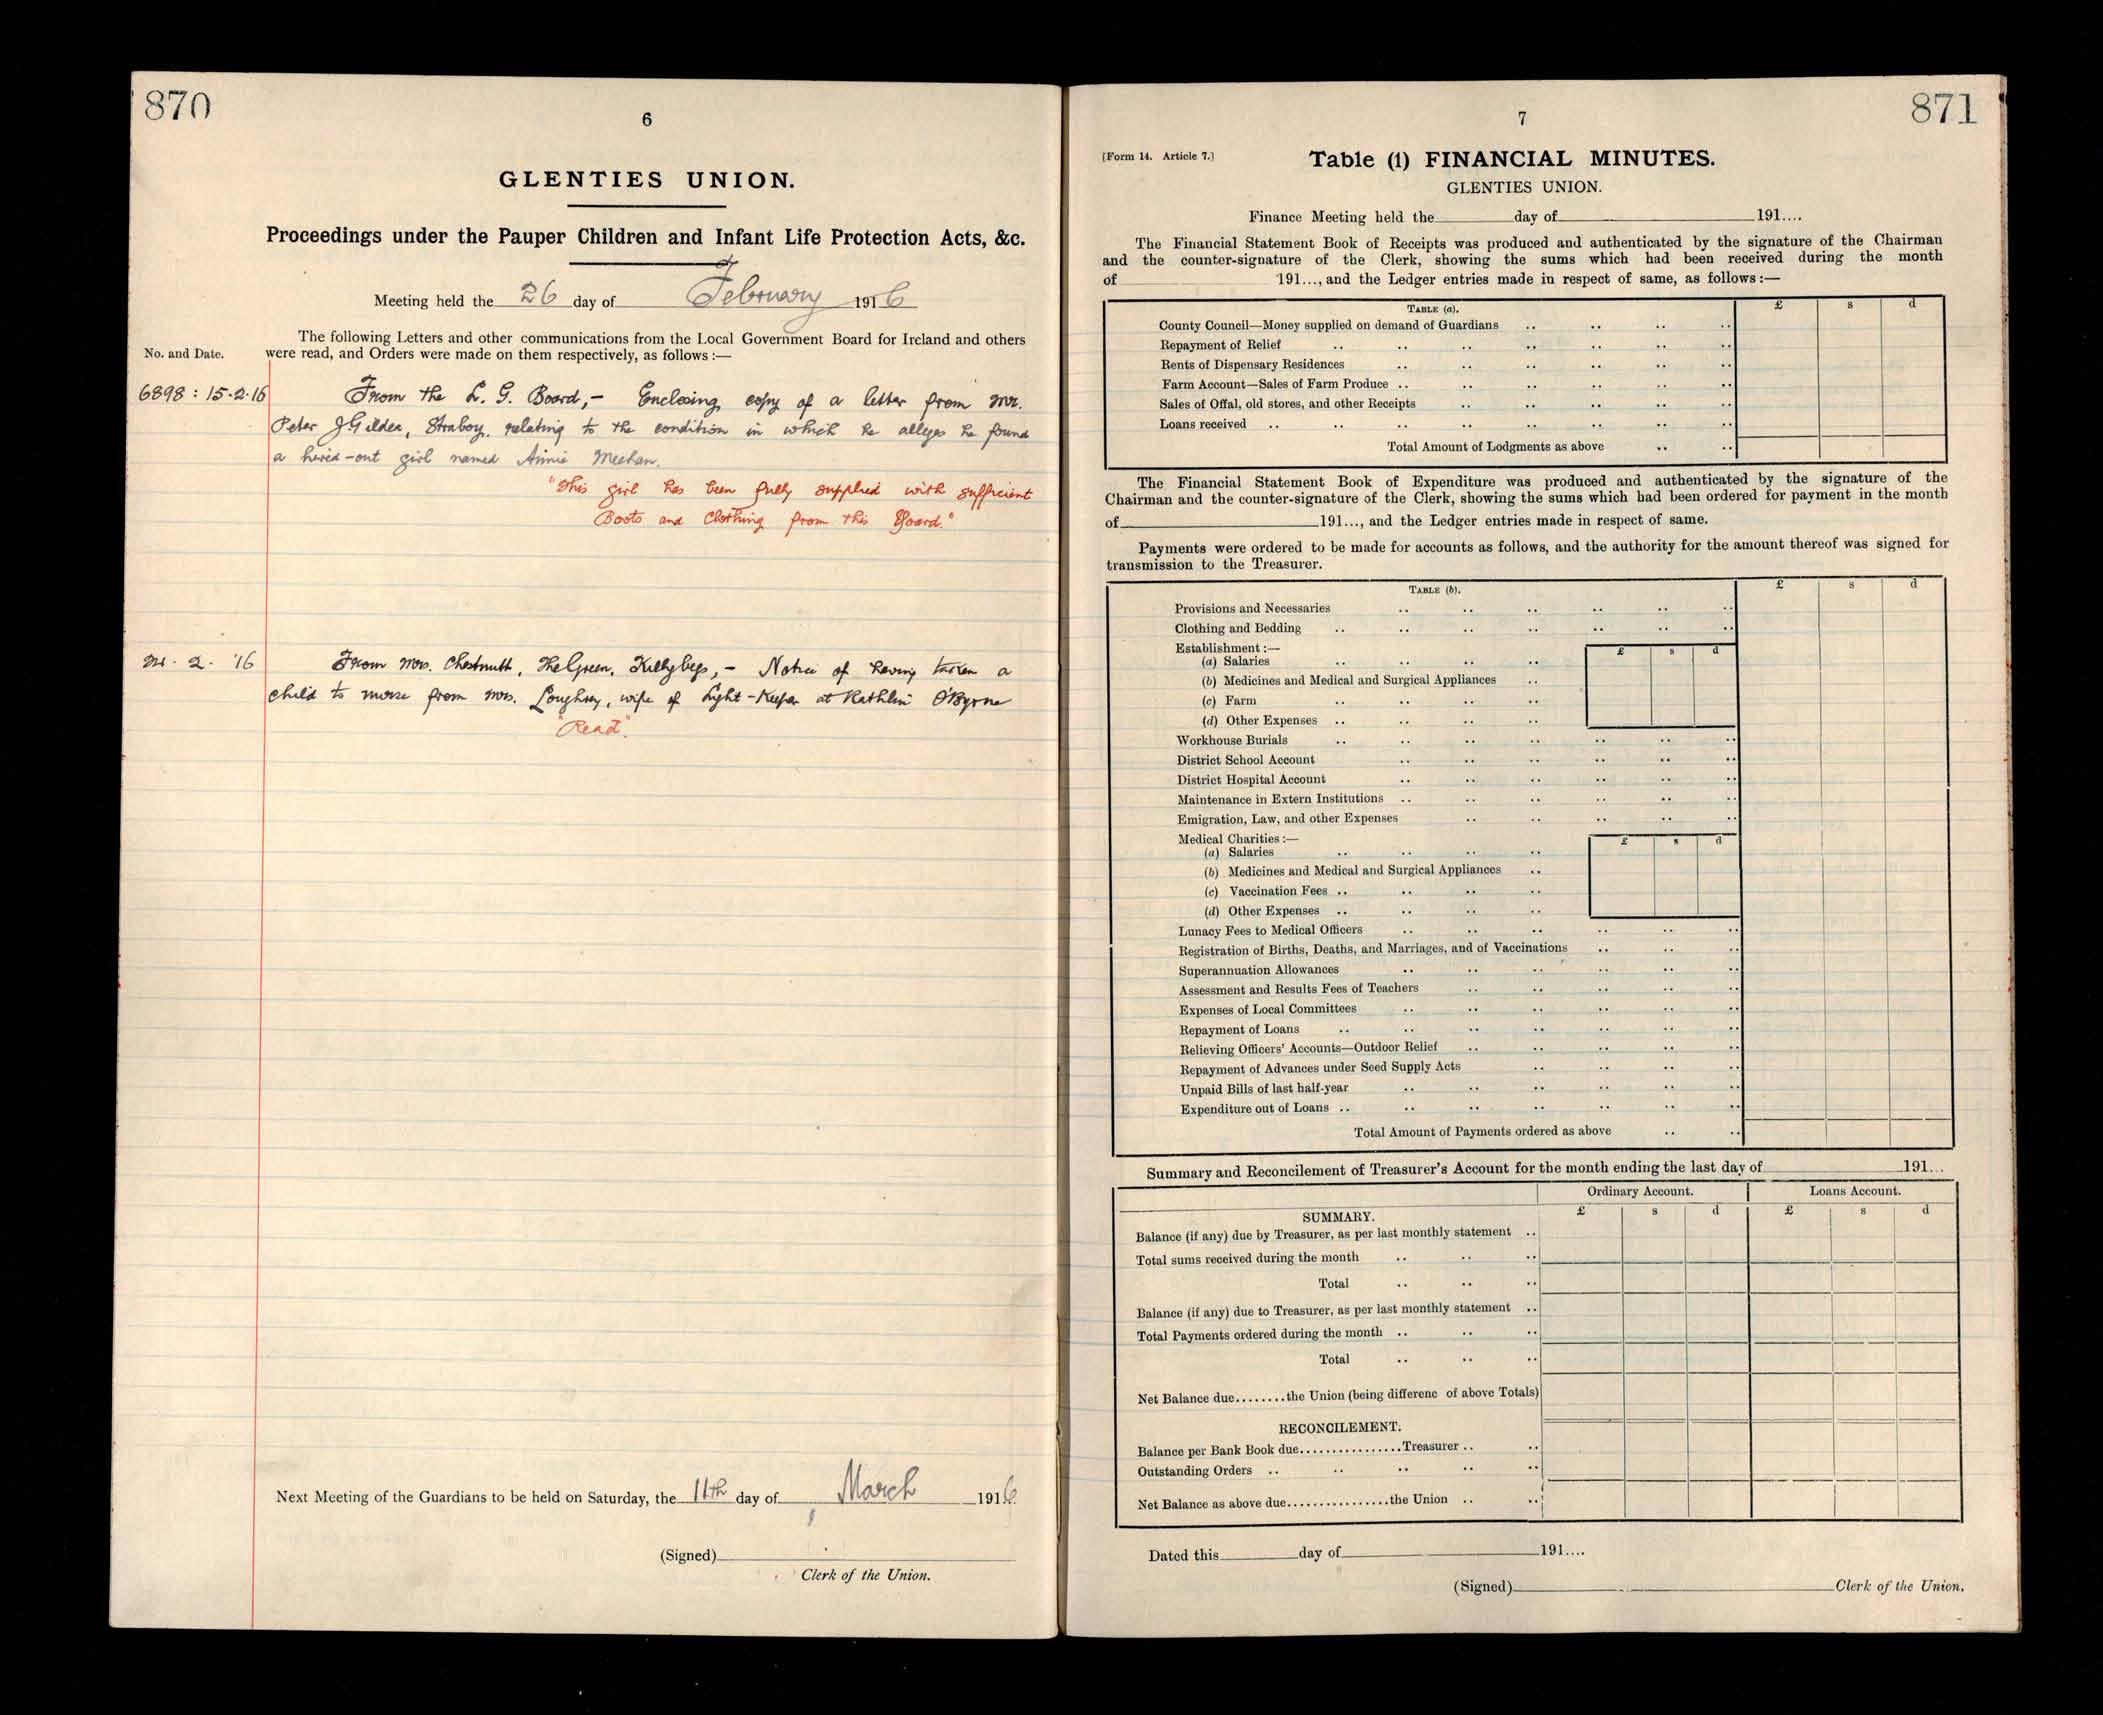 870
6
GLENTIES UNION.
Proceedings under the Pauper Children and Infant Life Protection Acts, &c.
Meeting held the 26 day of February 1916
The following Letters and other communications from the Local Government Board for Ireland and others
No. and Date. were read, and Orders were made on them respectively, as follows :—
6898 : 15.2.16 From the L. G. Board,- Enclosing copy of a letter from Mr.
Peter J Gildea, Straboy, relating to the condition in which he alleges he found
a hired-out girl named Annie Meehan.
"This girl has been fully supplied with sufficient
Boots and Clothing from this Board."
2. '16 From Mrs. Chestnutt, The Green, Killybegs, - Notice of having taken a
child to nurse from Mrs. Loughrey, wife of Light-Keeper at Rathlin O'Byrne
"Read".
Next Meeting of the Guardians to be held on Saturday, the 11th day of March 1916
(Signed)
Clerk of the Union.
871
7
[Form 14. Article 7.] Table (1) FINANCIAL MINUTES.
GLENTIES UNION.
Finance Meeting held the day of 191....
The Financial Statement Book of Receipts was produced and authenticated by the signature of the Chairman
and the counter-signature of the Clerk, showing the sums which had been received during the month
of 191..., and the Ledger entries made in respect of same, as follows :—
TABLE (a). £ s d
County Council—Money supplied on demand of Guardians .. .. .. ..
Repayment of Relief .. .. .. .. .. .. ..
Rents of Dispensary Residences .. .. .. .. .. ..
Farm Account—Sales of Farm Produce .. .. .. .. .. ..
Sales of Offal, old stores, and other Receipts .. .. .. .. ..
Loans received .. .. .. .. .. .. .. ..
Total Amount of Lodgments as above .. ..
The Financial Statement Book of Expenditure was produced and authenticated by the signature of the
Chairman and the counter-signature of the Clerk, showing the sums which had been ordered for payment in the month
of 191..., and the Ledger entries made in respect of same.
Payments were ordered to be made for accounts as follows, and the authority for the amount thereof was signed for
transmission to the Treasurer.
TABLE (b). £ s d
Provisions and Necessaries .. .. .. .. .. ..
Clothing and Bedding .. .. .. .. .. .. ..
Establishment :— £ s d
(a) Salaries .. .. .. ..
(b) Medicines and Medical and Surgical Appliances ..
(c) Farm .. .. .. ..
(d) Other Expenses .. .. .. ..
Workhouse Burials .. .. .. .. .. .. ..
District School Account .. .. .. .. .. ..
District Hospital Account .. .. .. .. .. ..
Maintenance in Extern Institutions .. .. .. .. .. ..
Emigration, Law, and other Expenses .. .. .. .. ..
Medical Charities :— £ s d
(a) Salaries .. .. .. ..
(b) Medicines and Medical and Surgical Appliances ..
(c) Vaccination Fees .. .. .. ..
(d) Other Expenses .. .. .. ..
Lunacy Fees to Medical Officers .. .. .. .. .. ..
Registration of Births, Deaths, and Marriages, and of Vaccinations .. .. ..
Superannuation Allowances .. .. .. .. .. ..
Assessment and Results Fees of Teachers .. .. .. .. ..
Expenses of Local Committees .. .. .. .. .. ..
Repayment of Loans .. .. .. .. .. .. ..
Relieving Officers' Accounts—Outdoor Relief .. .. .. .. ..
Repayment of Advances under Seed Supply Acts .. .. .. ..
Unpaid Bills of last half-year .. .. .. .. .. ..
Expenditure out of Loans .. .. .. .. .. .. ..
Total Amount of Payments ordered as above .. ..
Summary and Reconcilement of Treasurer's Account for the month ending the last day of 191...
Ordinary Account. Loans Account.
SUMMARY. £ s d £ s d
Balance (if any) due by Treasurer, as per last monthly statement ..
Total sums received during the month .. .. ..
Total .. .. ..
Balance (if any) due to Treasurer, as per last monthly statement ..
Total Payments ordered during the month .. .. ..
Total .. .. ..
Net Balance due........the Union (being differenc of above Totals)
RECONCILEMENT.
Balance per Bank Book due................Treasurer .. ..
Outstanding Orders .. .. .. .. ..
Net Balance as above due................the Union .. ..
Dated this day of 191....
(Signed) Clerk of the Union.